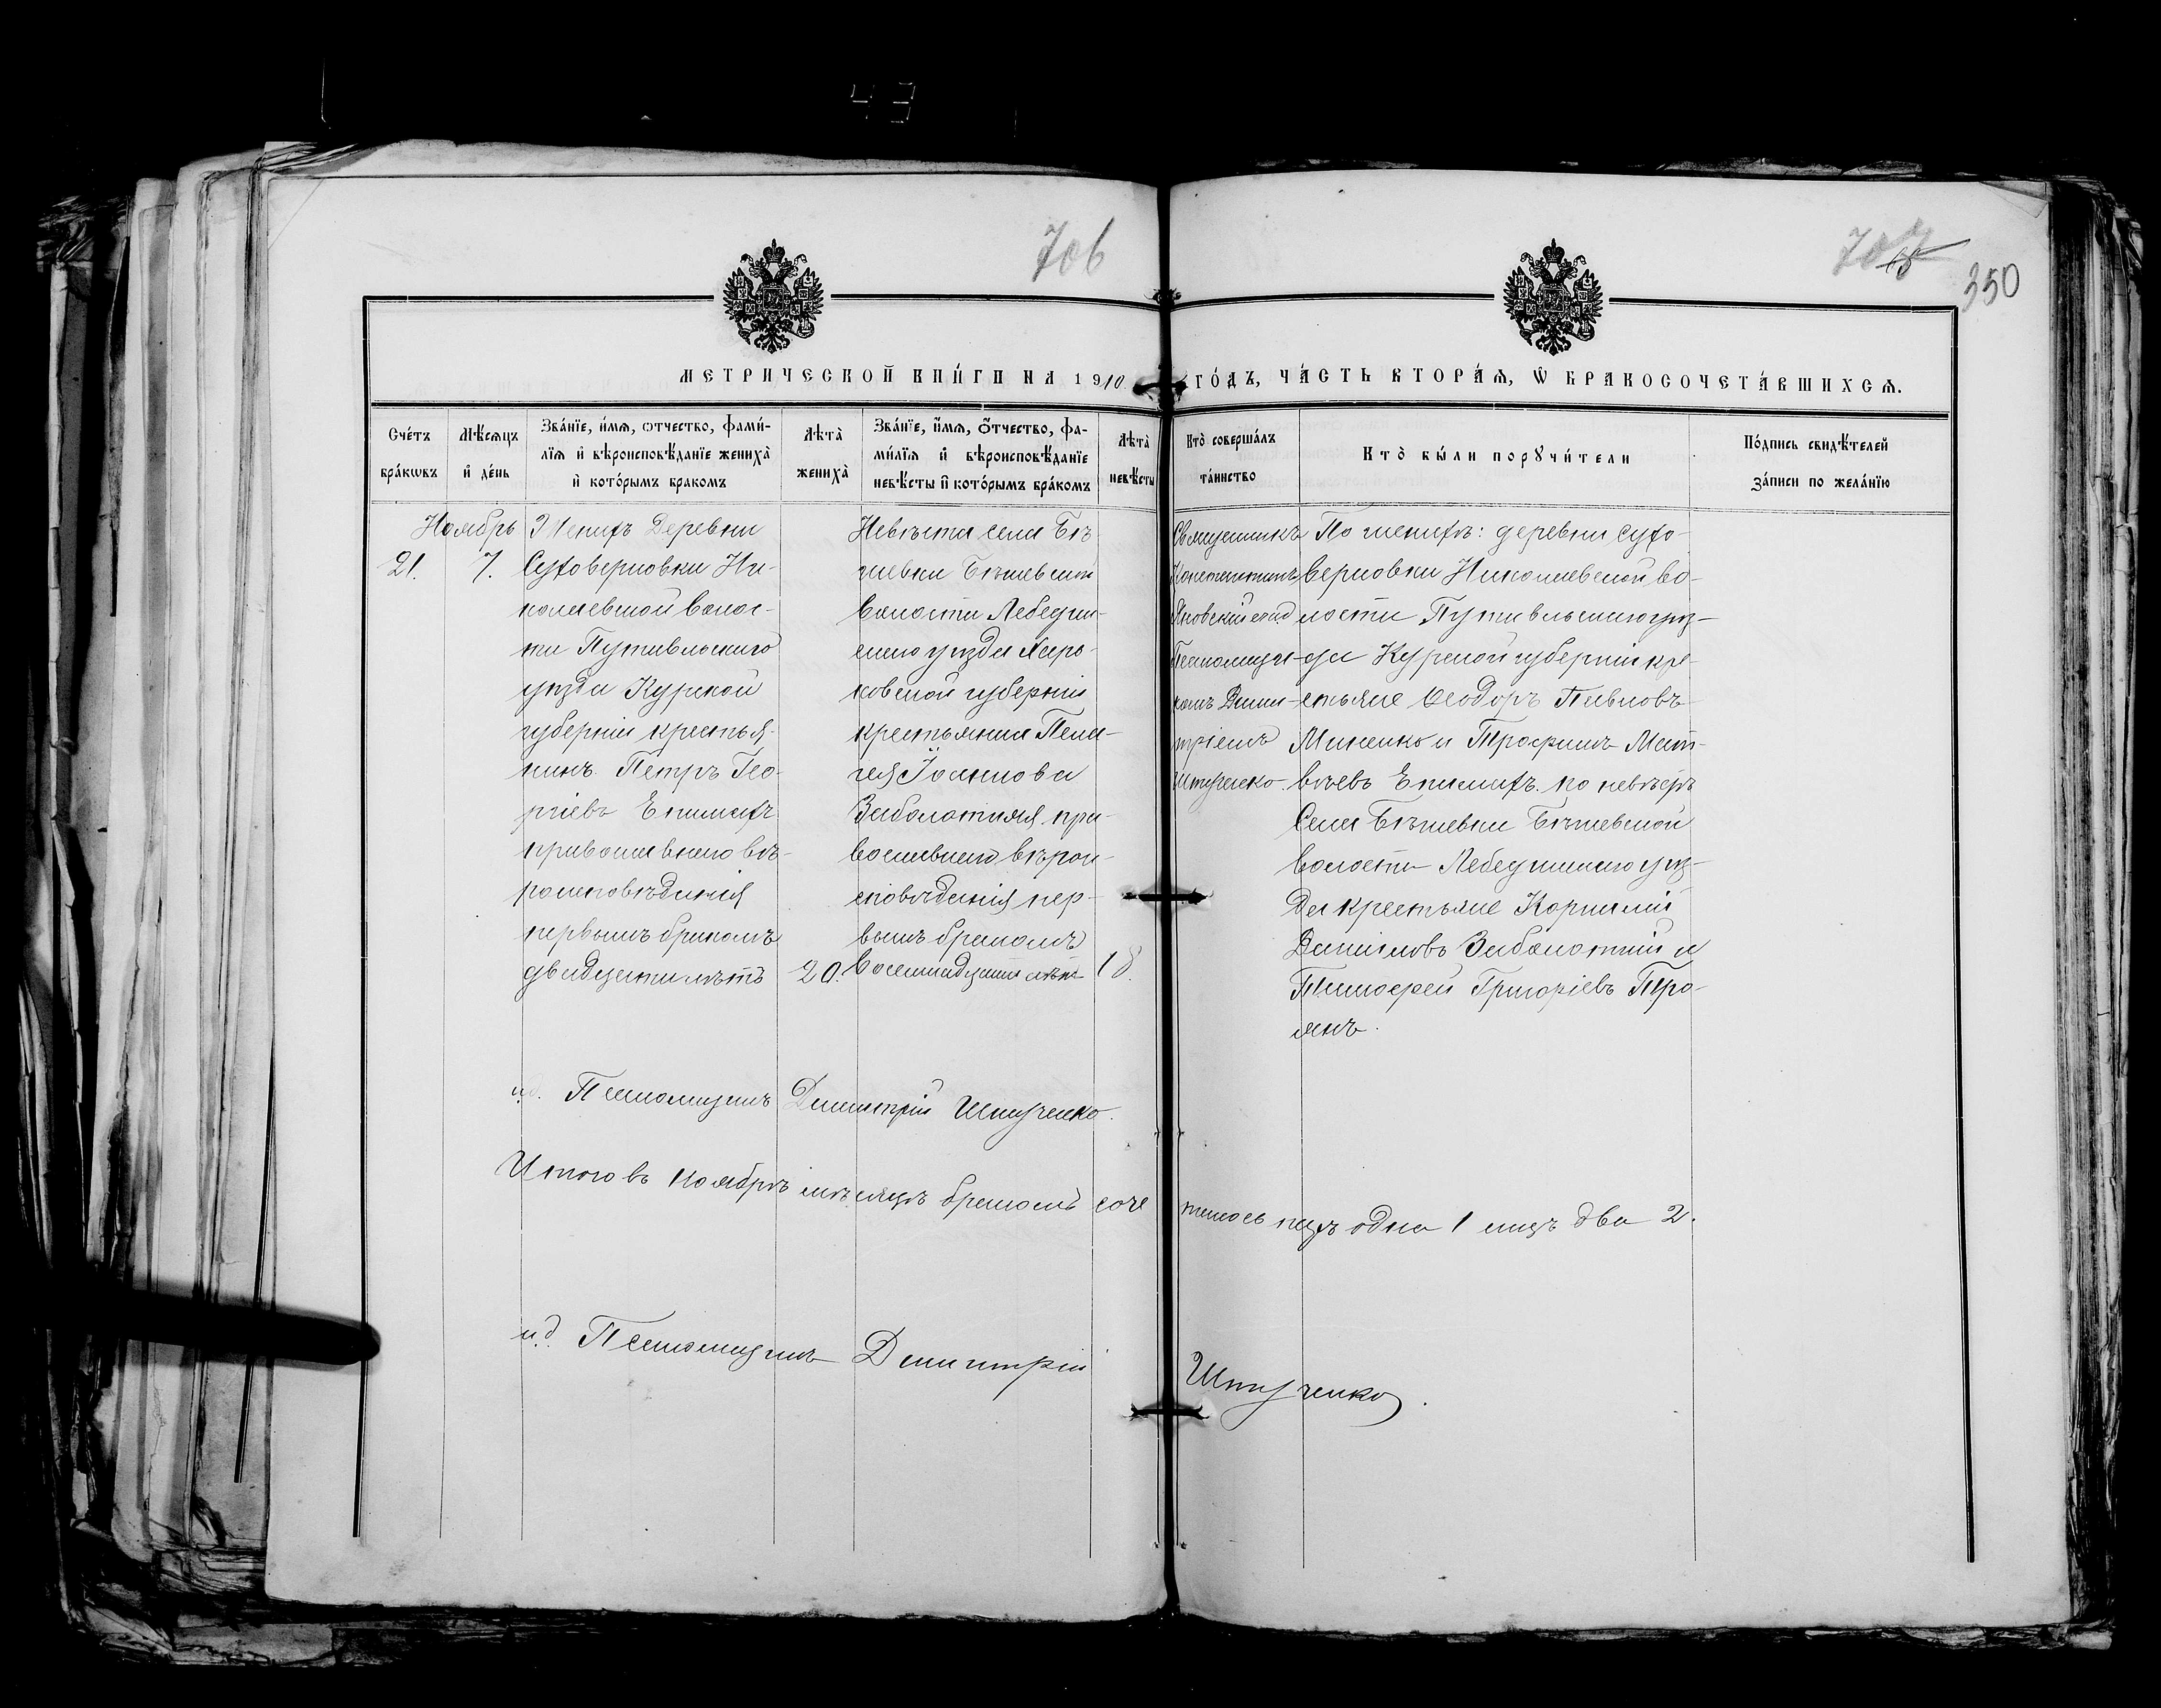 43
706
707
65
350
МЕТРИЧЕСКОЙ КНИ́ГИ НА 1910
ГО́ДЪ, ЧА́СТЬ ВТОРА́Ѧ, Ѡ БРАКОСОЧЕТА́ВШИХСѦ.
Сче́тъ бра́кωвъ
Мѣ́сѧцъ и̂ де́нь
Зва́нїе, и́мѧ, ѻтчество, фами́-
лїѧ и̂ вѣроисповѣ́данїе жениха̀
и̂ кото́рымъ бракомъ
Лѣта̀ жениха̀
Зва́нїе, и́мѧ, ѻ́тчество, фа-
ми́лїѧ и̂ вѣроисповѣ́данїе
невѣ́сты и̂ кото́рымъ бра́комъ
Лѣта̀ невѣ́сты
Кто̀ соверша́лъ та́инство
Кто̀ бы́ли порꙋчи́тели
По́дпись свидѣ́телей
за́писи по жела́нїю
Ноябрь
21. 7.
Женихъ Деревни
Суховерховки Ни-
колаевской волос-
ти Путивльскаго
уѣзда Курской
губерніи крестья-
нинъ Петръ Гео-
ргіевъ Епишехъ
православнаго вѣ-
роисповѣданія
первымъ бракомъ
двадцати лѣтъ
20.
Невѣста села Бѣ
шевки Бѣшевской
волости Лебедин-
скаго уѣзда Харь-
ковской губерніи
крестьянка Пела-
гея Іоаннова
Заболотняя пра-
вославнаго вѣрои-
сповѣданія пер-
вымъ бракомъ
восемнадцати лѣтъ
18.
Священникъ
Константинъ
Яновскій съ и.д
Псаломщи-
комъ Дими-
тріемъ
Шпурченко.
По женихѣ: деревни Сухо-
верховки Николаевской во-
лости Путивльскаго уѣз-
да Курской губерніи кре-
стьяне Ѳеодоръ Павловъ
Миненко и Трофимъ Мат-
вѣевъ Епишехъ. по невѣстѣ
Села Бѣшевки Бѣшевской
волости Лебединскаго уѣз-
да крестьяне Корнилій
Даниловъ Заболотній и
Тимоѳей Григоріевъ Тро-
янъ.
и.д. Псаломщикъ Димитрій Шпурченко.
Итого въ ноябрѣ мѣсяцѣ бракомъ соче талось паръ одна 1 лицъ два 2.
и.д. Псаломщикъ Димитрій Шпурченко.